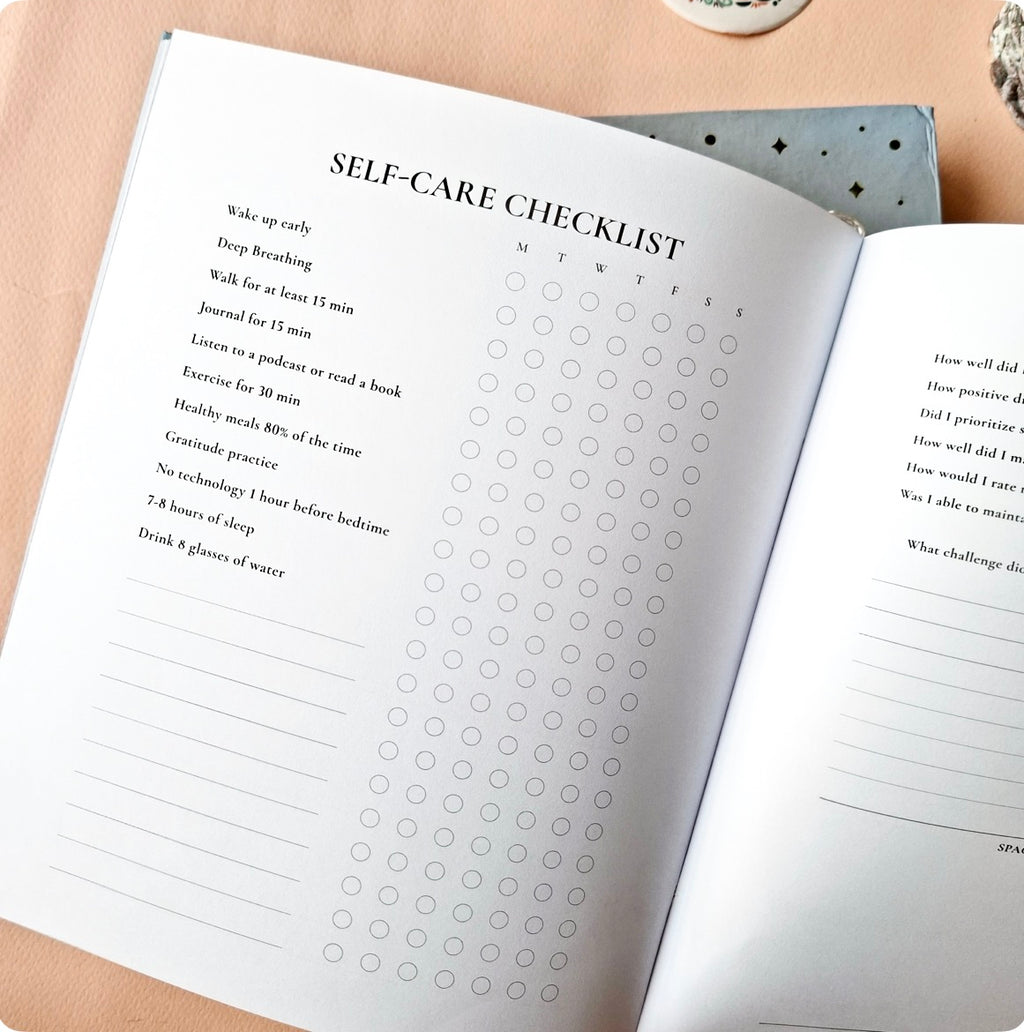 SELF-CARE CHECKLIST
M T W T F S S
Wake up early
Deep Breathing
Walk for at least 15 min
Journal for 15 min
Listen to a podcast or read a book
Exercise for 30 min
Healthy meals 80% of the time
Gratitude practice
No technology 1 hour before bedtime
7-8 hours of sleep
Drink 8 glasses of water
How well did
How positive
Did I prioritize
How well did I
How would I rate
Was I able to
What challenge